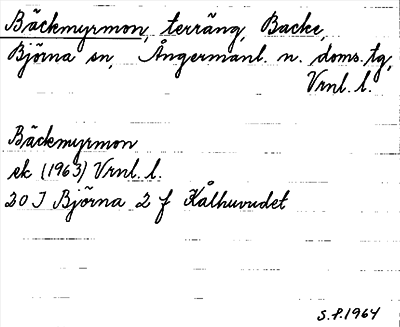 Bäckmyrmon, terräng, Backe,
Björna sn, Ångermanl. n. doms. tg,
Vrnl. l.
Bäckmyrmon
ek (1963) Vrnl. l.
20 J Björna 2 f Kålhuvudet
S.P.1964